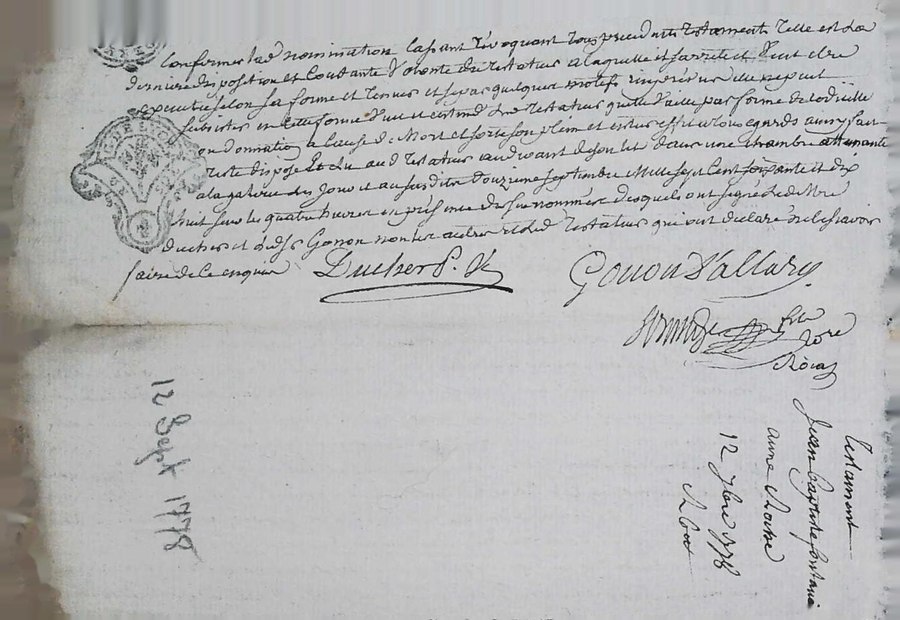 Conformer lad nomination Cassant révoquant tous précédents testaments telle est sa
dernière disposition et Constante Volonté du testateur a laquelle il et veut être
exécutée selon sa forme et teneur et si par quelque motifs imprévus elle ne peut
subsister en cette forme veut et entend led testateur quelle vaille par forme de Codicille
ou donnation a Cause de Mort et sorte son plein et entier effet a tous égards ainsy fait
testé disposé Et lu aud testateur au devant de son lit dans une chambre attenante
a la galerie du et au susditte Douzieme septembre Mille sept Cent soixante et dix
huit sur les quatre heures en présence des susnommés desquels ont signé led Mre
Ducher et led Sr Gonon non les autres et led testateur qui ont declaré ne le savoir
faire de ce enquis Ducher P. Gonon Dallary
not
Royal
12 Sept 1778
testament
Jean Baptiste fontaine
anne
12 7bre 1778